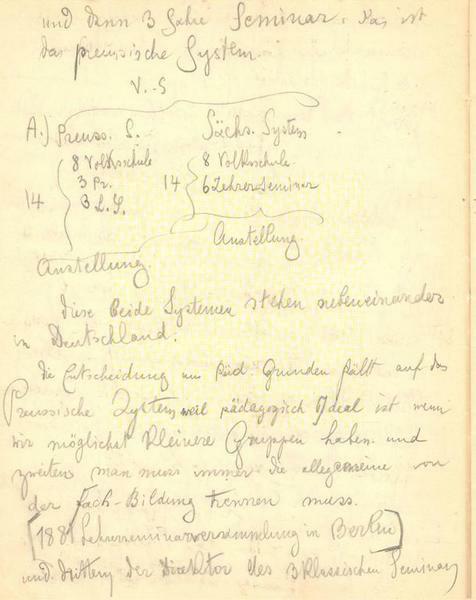 und dann 3 Jahre Seminar. Das ist
das preussische System.
V.-S
A.) Preuss. S. Sächs. System
8 Volksschule 8 Volksschule
14 3 Pr. 14 6 Lehrerseminar
3 L.S.
Anstellung
Anstellung.
Diese beide Systemen stehen nebeneinander
in Deutschland.
die Entscheidung Päd. Grunden fällt auf das
Preussische System weil pädagogisch Ideal ist wenn
wir möglichst kleinere Gruppen haben. und
zweitens man muss immer die allegemeine von
der Fach-Bildung trennen muss.
[1881 Lehrerseminarversammlung in Berlin]
und drittens der Direktor des 3 klassischen Seminars